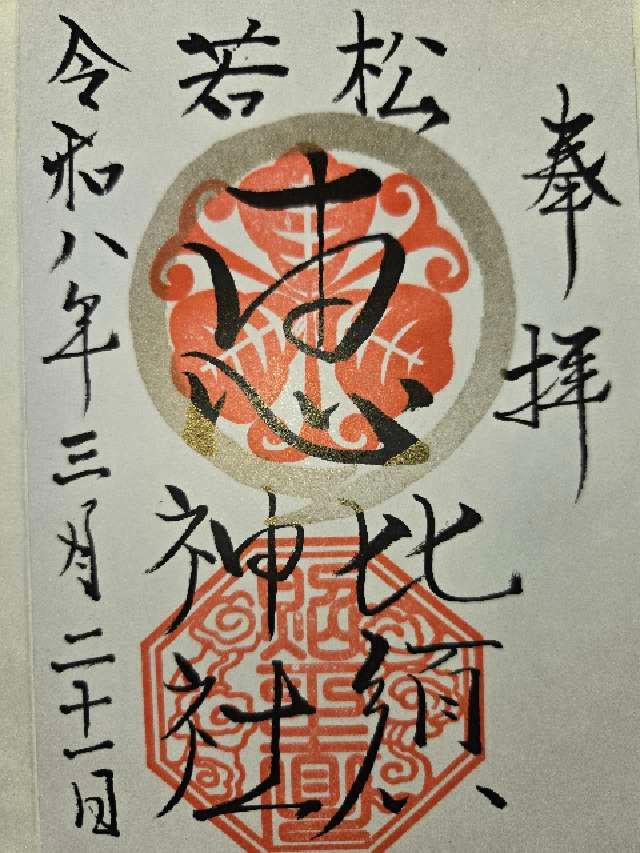 奉拝
若松
恵
比須
神社
令和八年三月二十一日